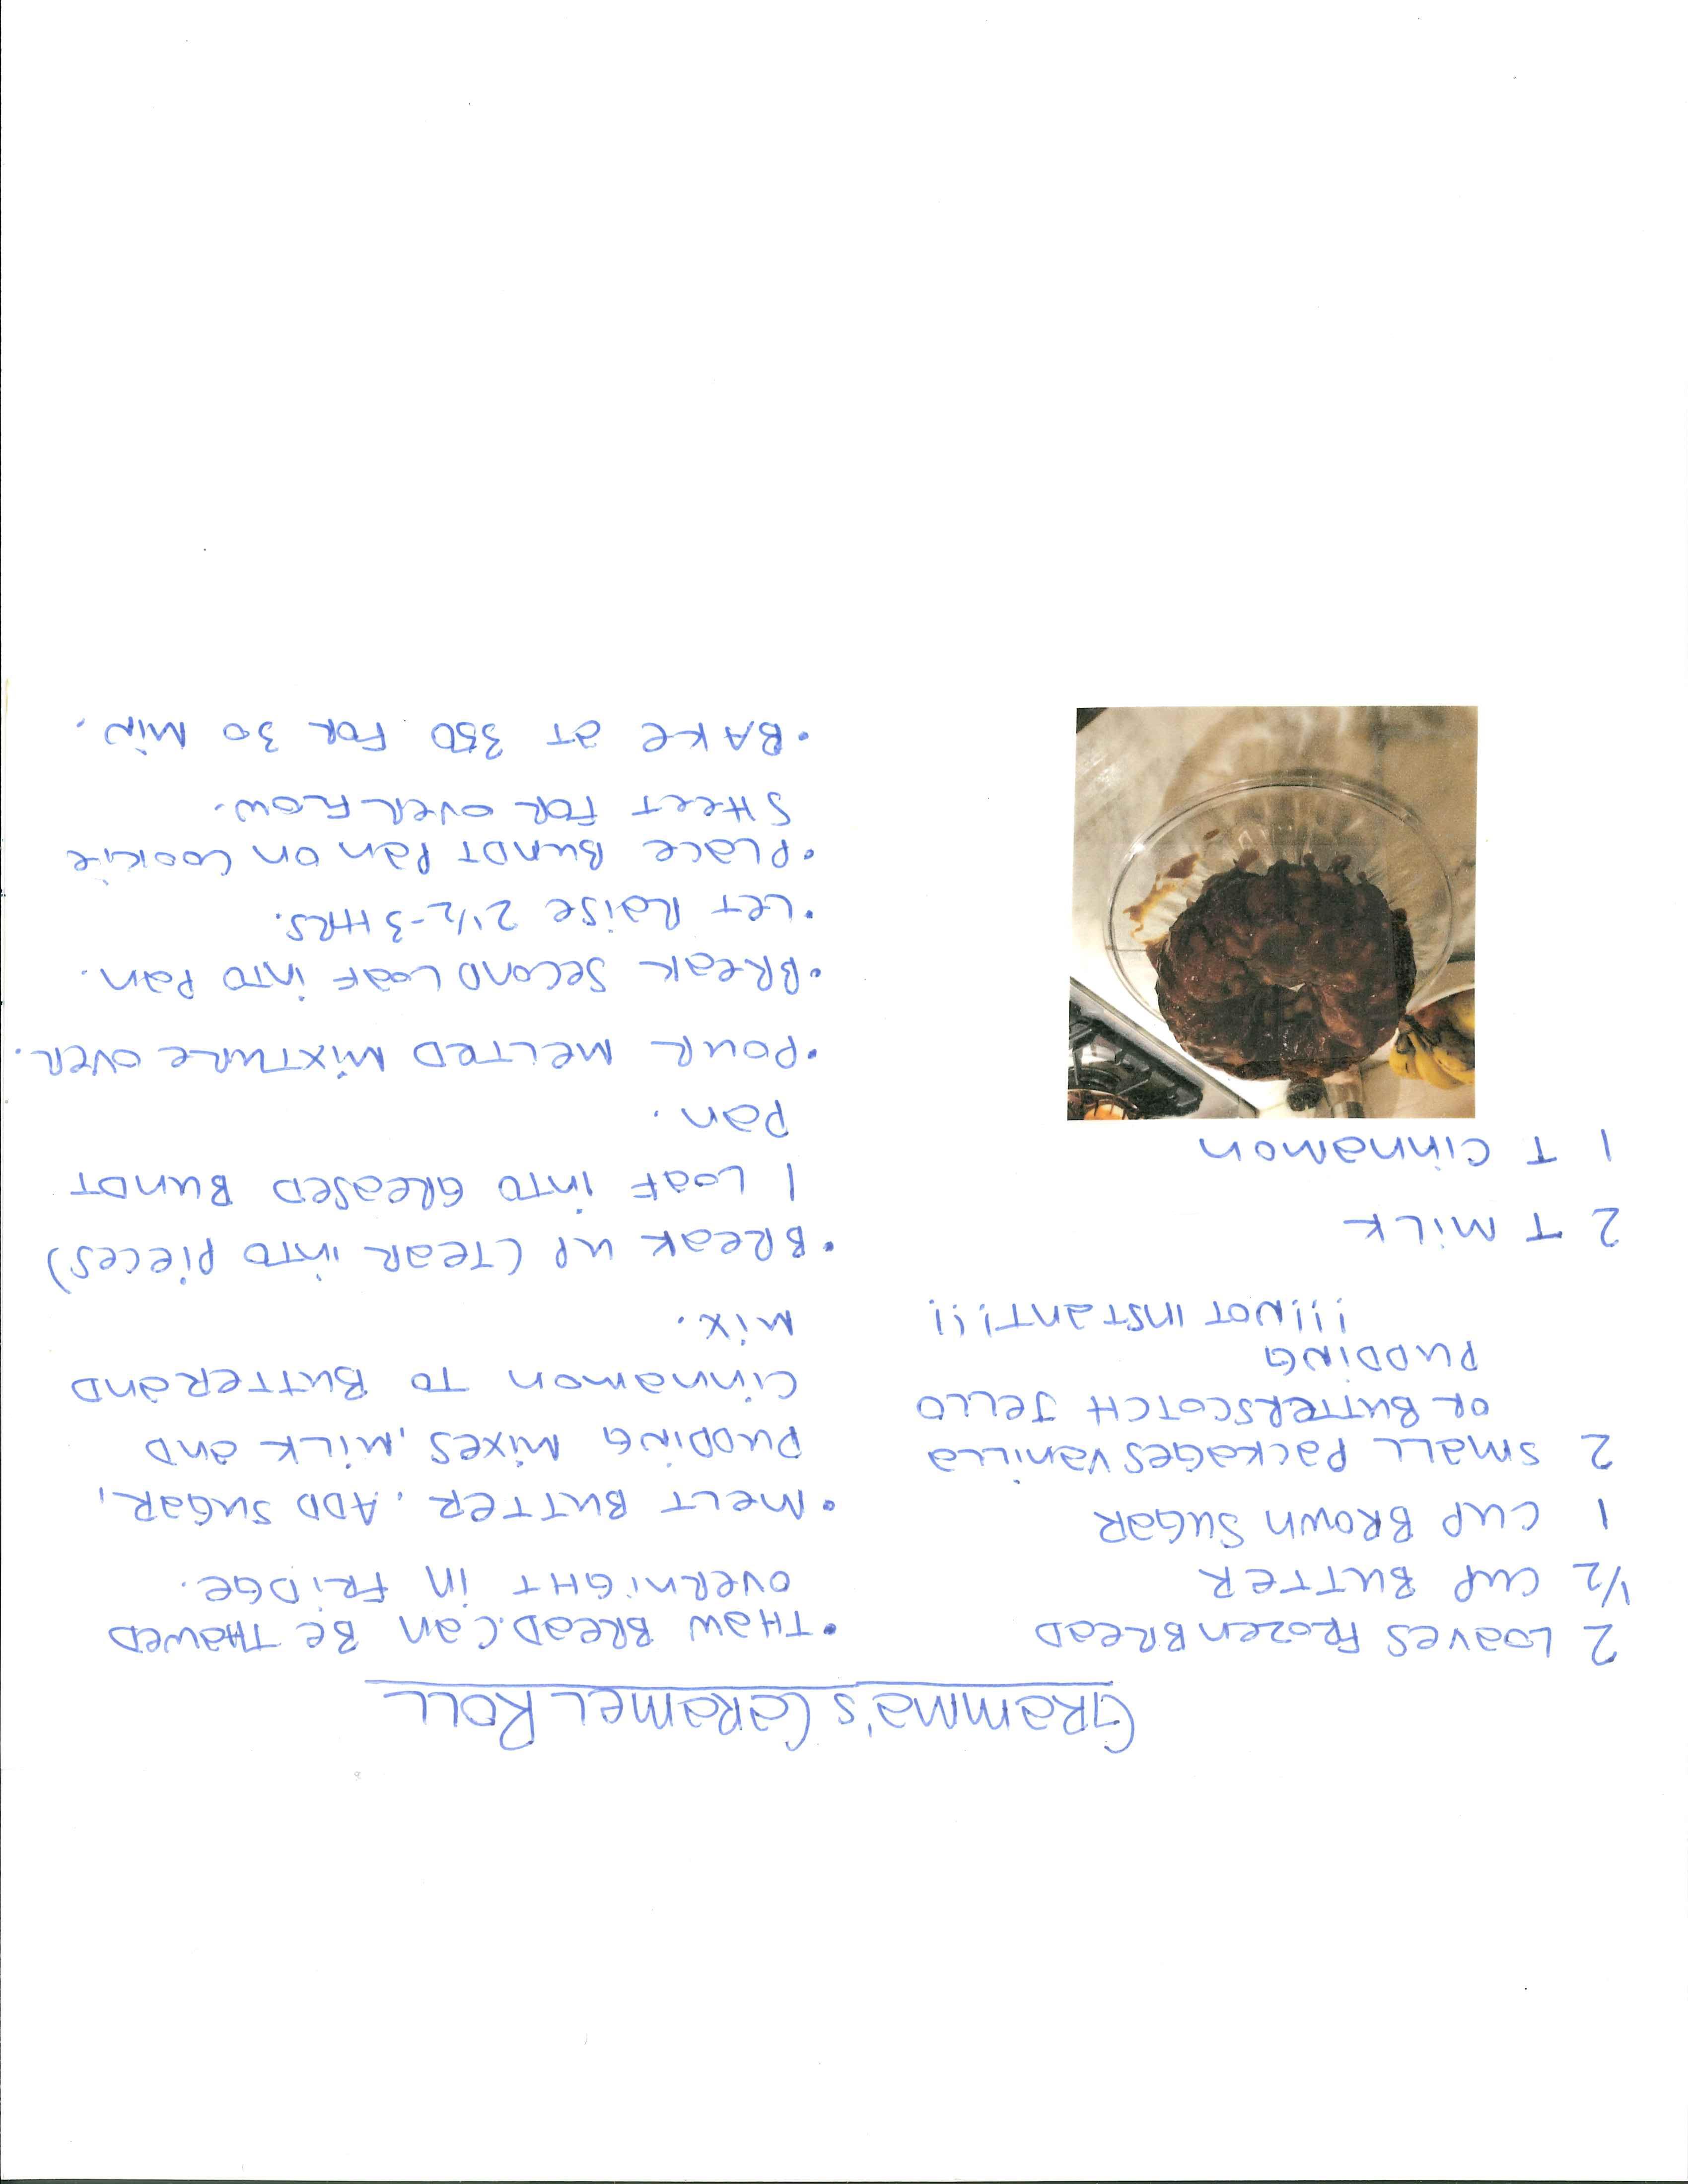 GRamma's CaRameL ROLL
2 Loaves FRozen BRead
1/2 CuP BuTTeR
1 CuP BROwn SuGaR
2 SmaLL PackaGes Vanilla
OR BuTTeRSCOTCH JeLLO
PuDDiNG
!!!NOT INSTanT!!!
2 T MiLK
1 T Cinnamon
• THaw BReaD. Can Be THaweD
OVeRniGHT in FRiDGe.
• MeLT BuTTeR. ADD SuGaR,
PuDDiNG MiXes, MiLK and
Cinnamon TO BuTTeR and
MiX.
• BReaK uP (TeaR inTO Pieces)
1 LoaF inTO GReaseD BunDT
Pan.
• POuR MeLTeD MiXTuRe OVeR.
• BReaK SeconD LoaF inTO Pan.
• LeT Raise 2 1/2-3 HRS.
• PLace BunDT Pan on Cookie
SHeeT FOR OVeRFLOw.
• BAKe aT 350 FOR 30 MiN.